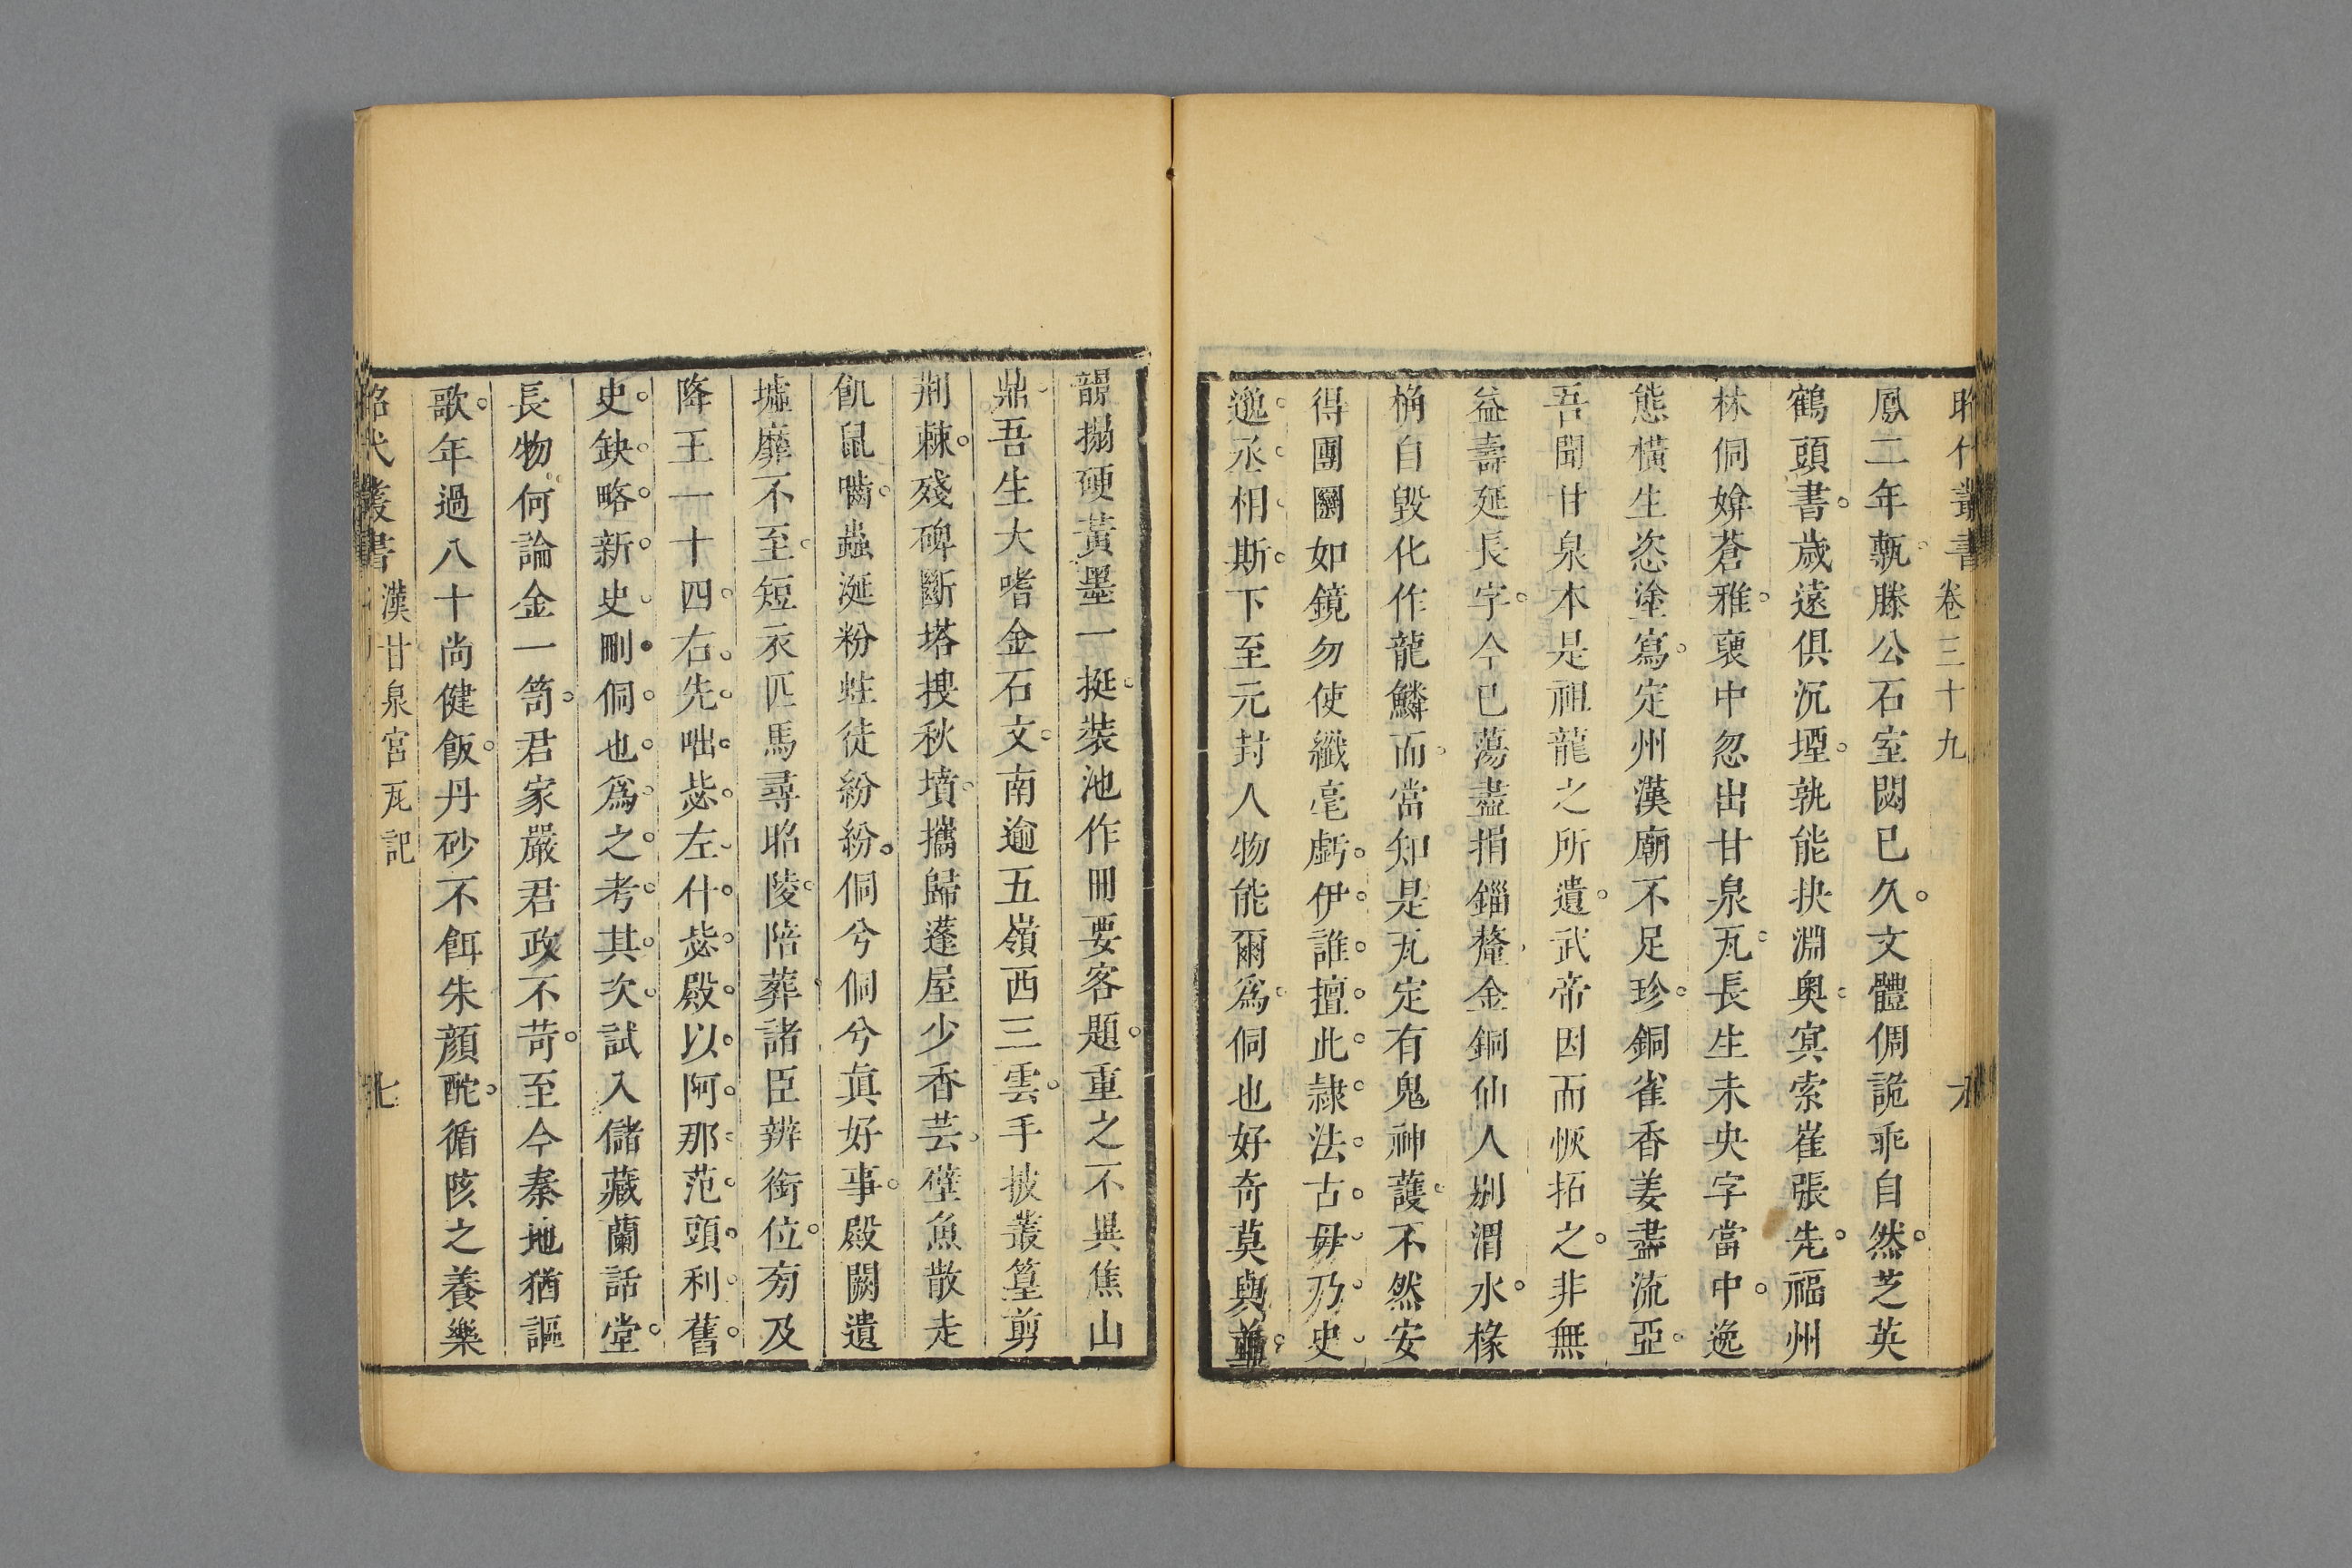 昭代叢書 卷三十九
鳳二年甎滕公石室閟已久文體倜詭乖自然芝英
鶴頭書歲遠俱沉堙孰能抉淵奧㝠索崔張先福州
林侗媕蒼雅裒中忽出甘泉瓦長生未央字當中逸
態橫生恣塗寫定州漢廟不足珍銅雀香姜盡流亞
吾聞甘泉本是祖龍之所遺武帝因而恢拓之非無
益壽延長字今已蕩盡捐錙釐金銅仙人別渭水椽
桷自毀化作龍鱗而當知是瓦定有鬼神護不然安
得團圞如鏡勿使纖毫虧伊誰擅此隷法古毋乃史
邈丞相斯下至元封人物能爾爲侗也好奇莫與
韻搨硬黃墨一挺裝池作冊要客題重之不異焦山
鼎吾生大嗜金石文南逾五嶺西三雲手披叢篁剪
荆棘殘碑斷塔搜秋墳攜歸蓬屋少香芸壁魚散走
飢鼠嚙蟲涎粉蛀徒紛紛侗兮侗兮眞好事殿闕遺
墟靡不至短衣匹馬尋昭陵陪葬諸臣辨銜位旁及
降王一十四右先咄苾左什苾殿以阿那范頭利舊
史缺略新史刪侗也爲之考其次試入儲藏蘭話堂
長物何論金一笥君家嚴君政不苛至今秦地猶謳
歌年過八十尚健飯丹砂不餌朱顏酡循陔之養樂
昭代叢書 漢甘泉宮瓦記 七